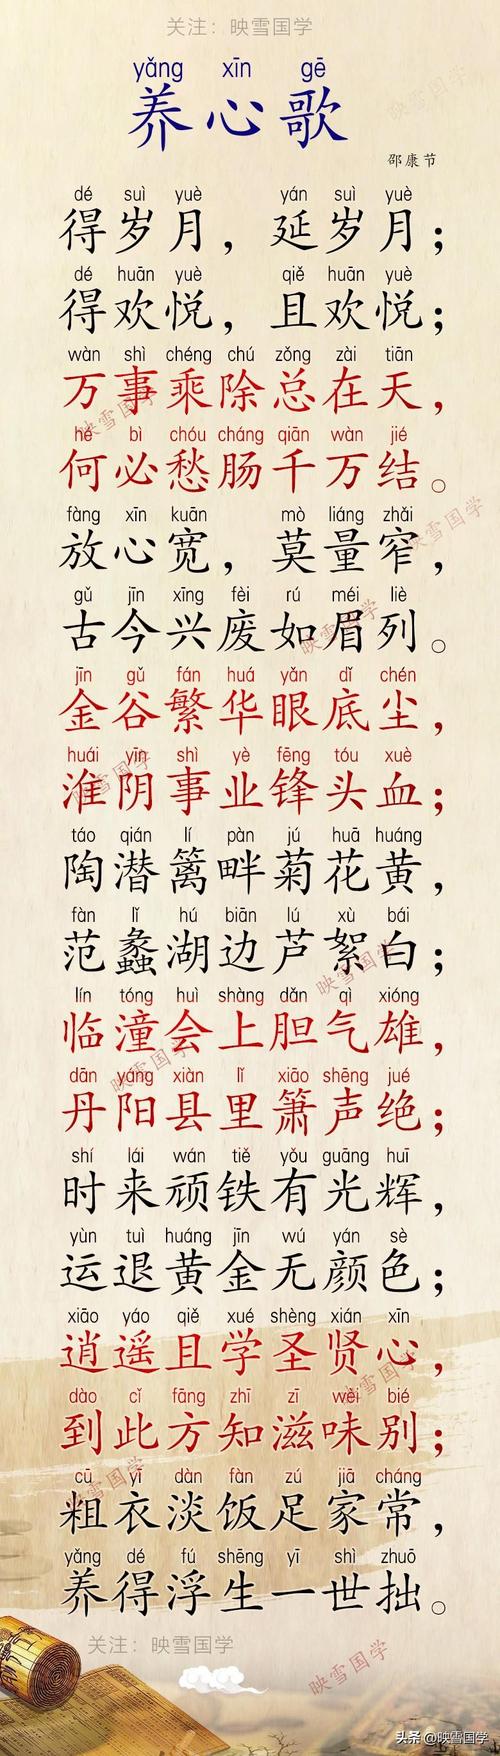 关注：映雪国学
yǎng xīn gē
养心歌
邵康节
dé suì yuè yán suì yuè
得岁月，延岁月；
dé huān yuè qiě huān yuè
得欢悦，且欢悦；
wàn shì chéng chú zǒng zài tiān
万事乘除总在天，
hé bì chóu cháng qiān wàn jié
何必愁肠千万结。
fàng xīn kuān mò liáng zhǎi
放心宽，莫量窄，
gǔ jīn xīng fèi rú méi liè
古今兴废如眉列。
jīn gǔ fán huá yǎn dǐ chén
金谷繁华眼底尘，
huái yīn shì yè fēng tóu xuè
淮阴事业锋头血；
táo qián lí pàn jú huā huáng
陶潜篱畔菊花黄，
fàn lǐ hú biān lú xù bái
范蠡湖边芦絮白；
lín tóng huì shàng dǎn qì xióng
临潼会上胆气雄，
dān yáng xiàn lǐ xiāo shēng jué
丹阳县里箫声绝；
shí lái wán tiě yǒu guāng huī
时来顽铁有光辉，
yùn tuì huáng jīn wú yán sè
运退黄金无颜色；
xiāo yáo qiě xué shèng xián xīn
逍遥且学圣贤心，
dào cǐ fāng zhī zī wèi bié
到此方知滋味别；
cū yī dàn fàn zú jiā cháng
粗衣淡饭足家常，
yǎng dé fú shēng yī shì zhuō
养得浮生一世拙。
关注：映雪国学
映雪国学
头条 @映雪国学